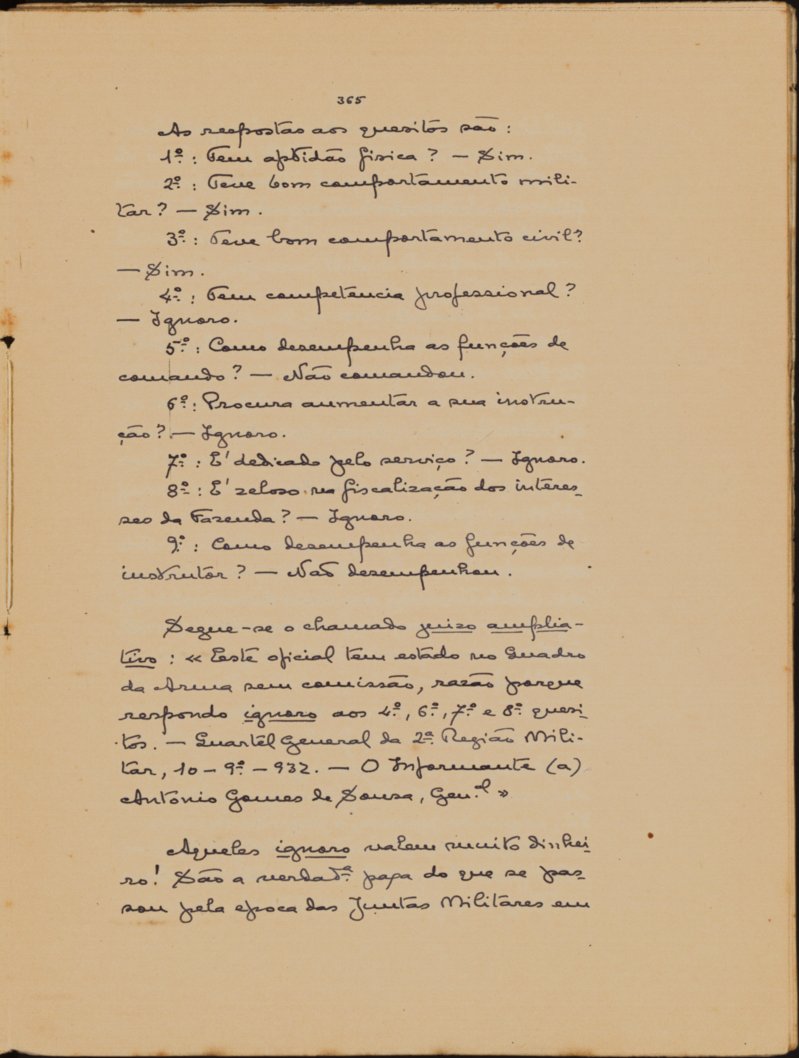 365
As respostas aos quesitos são:
1º: Tem aptidão fisica? — Sim.
2º: Teve bom comportamento mili-
tar? — Sim.
3º: Teve bom comportamento civil?
— Sim.
4º: Tem competencia professional?
— Ignoro.
5º: Como desempenha as funções de
comando? — Não comandou.
6º: Procura aumentar a sua instru-
ção? — Ignoro.
7º: E' dedicado pelo serviço? — Ignoro.
8º: E' zeloso na fiscalização dos interes-
ses da Fazenda? — Ignoro.
9º: Como desempenha as funções de
instrutor? — Não desempenhou.
Segue-se o chamado juizo amplia-
tivo: « Este oficial tem estado no Quadro
da Arma sem comissão, razão porque
respondo ignoro aos 4º, 6º, 7º e 8º quesi-
tos. — Quartel General da 2ª Região Mili-
tar, 10-9º-932. — O Informante (a)
Antonio Gomes de Sousa, Gen.al »
Aqueles ignoro valem muito dinhei-
ro! São a verdad.ª papa do que se pas-
sou pela epoca das Juntas Militares em